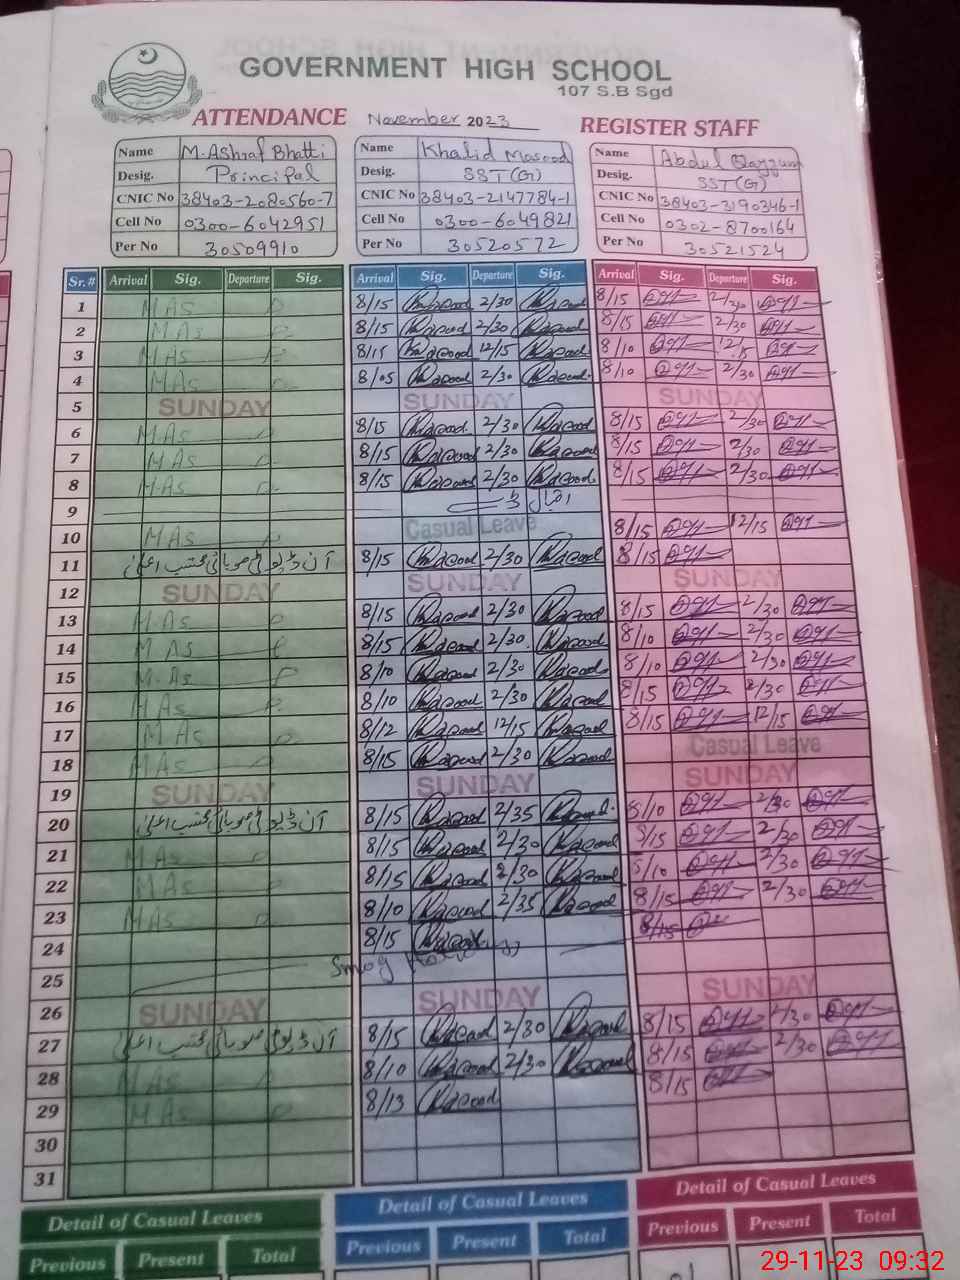 GOVERNMENT HIGH SCHOOL
107 S.B Sgd
ATTENDANCE November 2023 REGISTER STAFF
Name M.Ashraf Bhatti Name Khalid Masood Name Abdul Qayyum
Desig. Principal Desig. SST(G) Desig. SST(G)
CNIC No 38403-2080560-7 CNIC No 38403-2147784-1 CNIC No 38403-3190346-1
Cell No 0300-6042951 Cell No 0300-6049821 Cell No 0302-8700164
Per No 30509910 Per No 30520572 Per No 30521524
Sr.# Arrival Sig. Departure Sig. Arrival Sig. Departure Sig. Arrival Sig. Departure Sig.
1 MAs 8/15 Masood 2/30 Masood 8/15 2/30
2 MAs 8/15 Masood 2/30 Masood 8/15 2/30
3 MAs 8/15 Masood 12/15 Masood 8/10 12/15
4 MAs 8/05 Masood 2/30 Masood 8/10 2/30
5 SUNDAY SUNDAY SUNDAY
6 MAs 8/15 Masood 2/30 Masood 8/15 2/30
7 MAs 8/15 Masood 2/30 Masood 8/15 2/30
8 MAs 8/15 Masood 2/30 Masood 8/15 2/30
9 اقبال ڈے
10 MAs Casual Leave 8/15 12/15
11 آن ڈیوٹی صوبائی محتسب اعلیٰ 8/15 Masood 2/30 Masood 8/15
12 SUNDAY SUNDAY SUNDAY
13 MAs 8/15 Masood 2/30 Masood 8/15 2/30
14 MAs 8/15 Masood 2/30 Masood 8/10 2/30
15 MAs 8/10 Masood 2/30 Masood 8/10 2/30
16 MAs 8/10 Masood 2/30 Masood 8/15 2/30
17 MAs 8/12 Masood 12/15 Masood 8/15 12/15
18 MAs 8/15 Masood 2/30 Masood Casual Leave
19 SUNDAY SUNDAY SUNDAY
20 آن ڈیوٹی صوبائی محتسب اعلیٰ 8/15 Masood 2/35 Masood 8/10 2/30
21 MAs 8/15 Masood 2/30 Masood 8/15 2/30
22 MAs 8/15 Masood 2/30 Masood 8/10 2/30
23 MAs 8/10 Masood 2/35 Masood 8/15 2/30
24 8/15 Masood 8/15
25 Smog Holiday
26 SUNDAY SUNDAY SUNDAY
27 آن ڈیوٹی صوبائی محتسب اعلیٰ 8/15 Masood 2/30 Masood 8/15 2/30
28 MAs 8/10 Masood 2/30 Masood 8/15 2/30
29 MAs 8/13 Masood 8/15
30
31
Detail of Casual Leaves Detail of Casual Leaves Detail of Casual Leaves
Previous Present Total Previous Present Total Previous Present Total
01
29-11-23 09:32